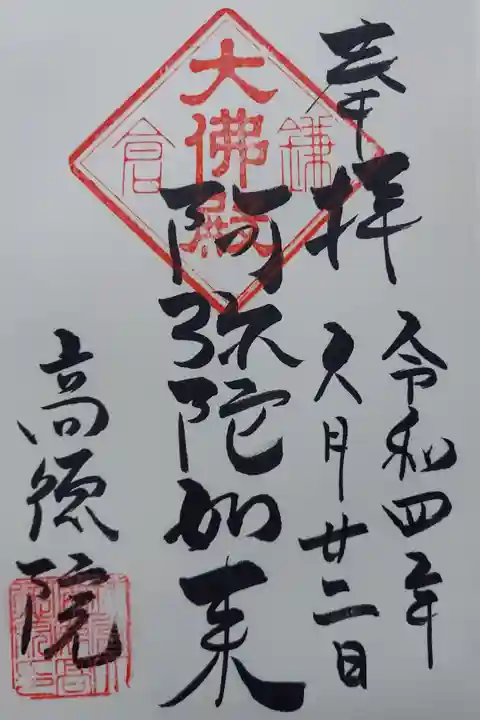 奉拝
令和四年
月廿二日
鎌倉
大佛殿
阿弥陀如来
高徳院